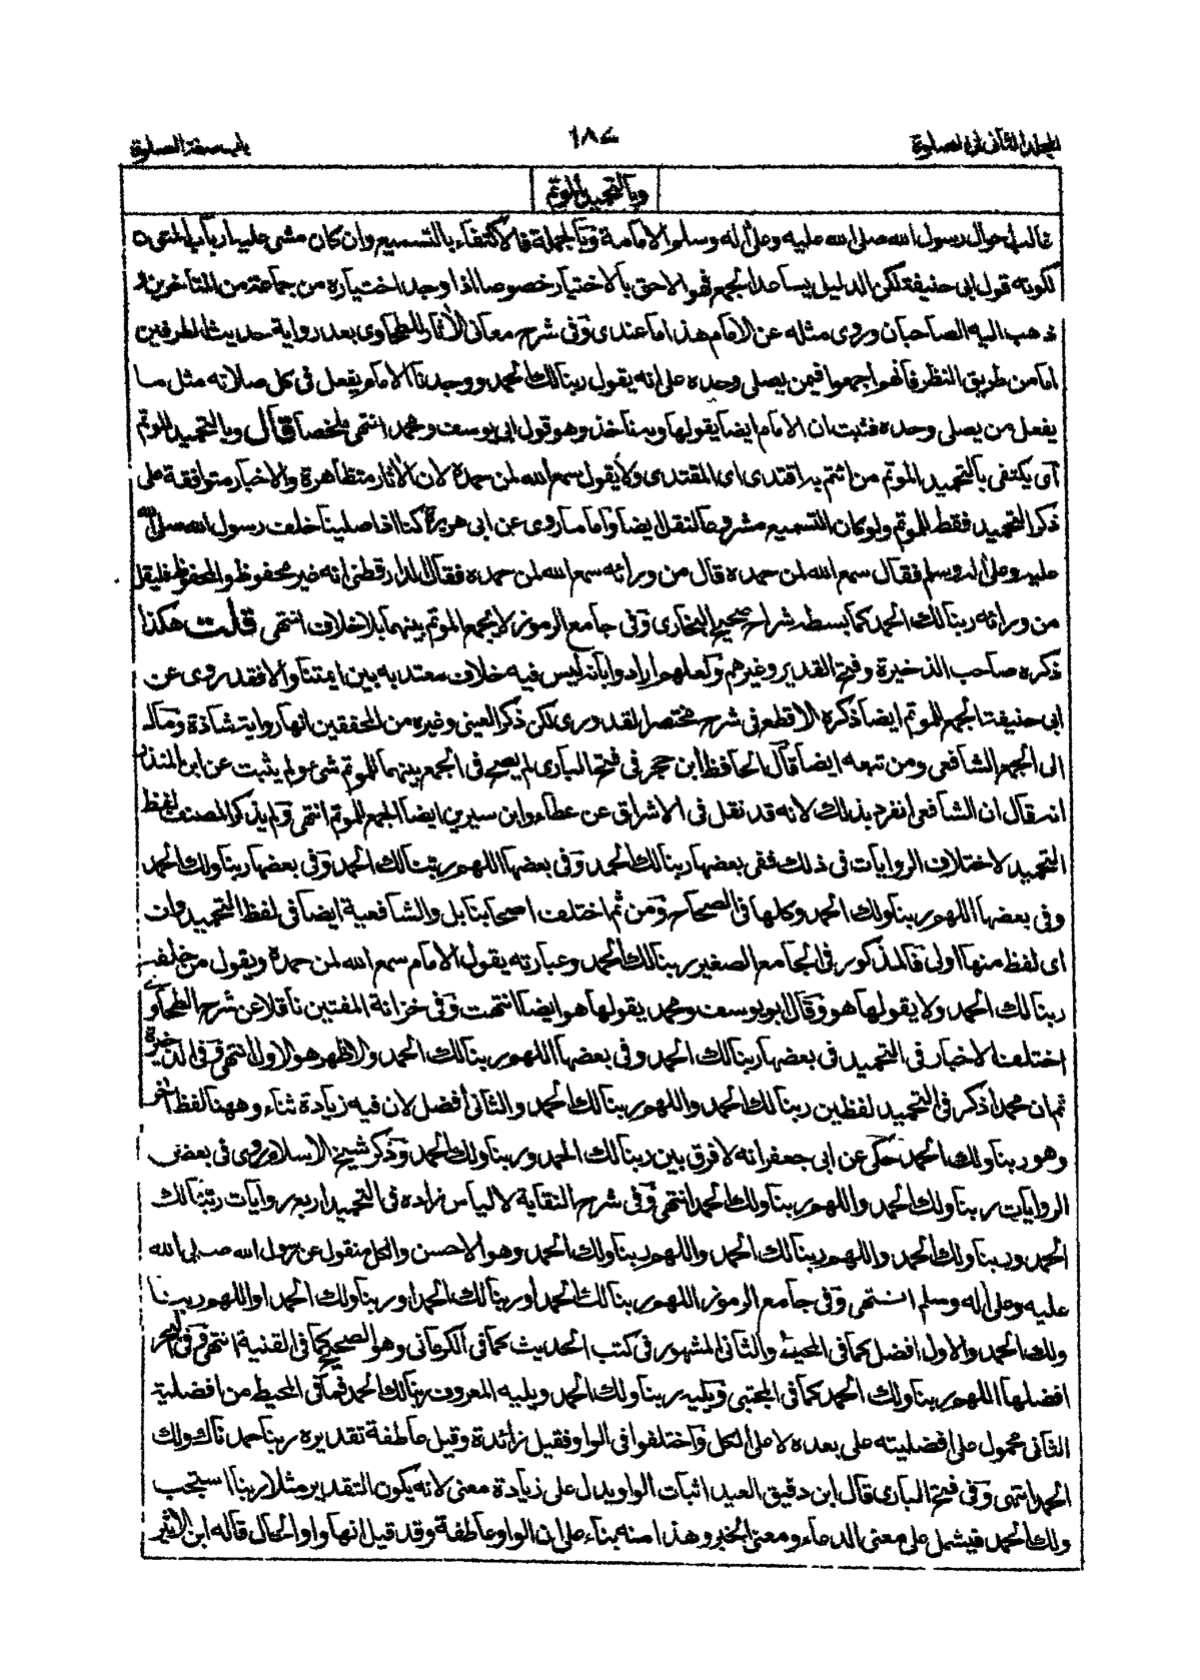 المجلد الثاني من الصلوة
١٨٧
باب صفة الصلوة
وبالتحميد المؤتم
غالب احوال رسول الله صلى الله عليه وعلى اله وسلم الامامة وبالجملة فالاكتفاء بالتسميع وان كان مشى عليه ارباب المتون
لكونه قول ابى حنيفة لكن الدليل يساعد الجمع فهو الاحق بالاختيار خصوصا اذا وجد اختياره من جماعة من المتاخرين و
ذهب اليه الصاحبان وروى مثله عن الامام هذا ما عندى وفى شرح معانى الآثار للطحاوى بعد رواية حديث الطرفين
اما من طريق النظر فانهم اجمعوا فيمن يصلى وحده على انه يقول ربنا لك الحمد ووجدنا الامام يفعل فى كل صلاته مثل ما
يفعل من يصلى وحده فثبت ان الامام ايضا يقولها وبه ناخذ وهو قول ابى يوسف ومحمد انتهى ملخصا قال وبالتحميد المؤتم
اى يكتفى بالتحميد المؤتم من ائتم به اقتدى اى المقتدى ولا يقول سمع الله لمن حمده لان الآثار متظاهرة والاخبار متوافقة على
ذكر التحميد فقط للمؤتم ولو كان التسميع مشروعا لنقل ايضا واما ما روى عن ابى هريرة كنا اذا صلينا خلف رسول الله صلى الله
عليه وعلى اله وسلم فقال سمع الله لمن حمده قال من ورائه سمع الله لمن حمده فقال الدارقطنى انه غير محفوظ والمحفوظ فليقل
من ورائه ربنا لك الحمد كما بسطه شراح صحيح البخارى وفى جامع الرموز لا يجمع المؤتم بينهما بلا خلاف انتهى قلت هكذا
ذكره صاحب الذخيرة وفتح القدير وغيرهم ولعلهم ارادوا بانه ليس فيه خلاف معتد به بين ائمتنا والا فقد روى عن
ابى حنيفة الجمع للمؤتم ايضا ذكره الاقطع فى شرح مختصر القدورى لكن ذكر العينى وغيره من المحققين انها رواية شاذة ومال
الى الجمع الشافعى ومن تبعه ايضا قال الحافظ ابن حجر فى فتح البارى لم يصح فى الجمع بينهما للمؤتم شئ ولم يثبت عن ابن المنذر
انه قال ان الشافعى انفرد بذلك لانه قد نقل فى الاشراق عن عطاء وابن سيرين ايضا الجمع للمؤتم انتهى ولم يذكر المصنف لفظ
التحميد لاختلاف الروايات فى ذلك ففى بعضها ربنا لك الحمد وفى بعضها اللهم ربنا لك الحمد وفى بعضها ربنا ولك الحمد
وفى بعضها اللهم ربنا ولك الحمد وكلها فى الصحاح ومن ثم اختلف اصحابنا بل والشافعية ايضا فى لفظ التحميد وان
اى لفظ منها اولى فالمذكور فى الجامع الصغير ربنا لك الحمد وعبارته يقول الامام سمع الله لمن حمده ويقول من خلفه
ربنا لك الحمد ولا يقولها هو وقال ابو يوسف ومحمد يقولها هو ايضا انتهت وفى خزانة المفتين ناقلا عن شرح الطحاوى
اختلفت الاخبار فى التحميد فى بعضها ربنا لك الحمد وفى بعضها اللهم ربنا لك الحمد والاظهر هو الاول انتهى وفى الذخيرة
ثم ان محمدا ذكر فى التحميد لفظين ربنا لك الحمد واللهم ربنا لك الحمد والثانى افضل لان فيه زيادة ثناء وههنا لفظ اخر
وهو ربنا ولك الحمد حكى عن ابى جعفر انه لا فرق بين ربنا لك الحمد وربنا ولك الحمد وذكر شيخ الاسلام روى فى بعض
الروايات ربنا ولك الحمد واللهم ربنا ولك الحمد انتهى وفى شرح النقاية لالياس زاده فى التحميد اربع روايات ربنا لك
الحمد وربنا ولك الحمد واللهم ربنا لك الحمد واللهم ربنا ولك الحمد وهو الاحسن والكل منقول عن رسول الله صلى الله
عليه وعلى اله وسلم انتهى وفى جامع الرموز اللهم ربنا لك الحمد او ربنا لك الحمد او ربنا ولك الحمد او اللهم ربنا
ولك الحمد والاول افضل كما فى المحيط والثانى المشهور فى كتب الحديث كما فى الكرمانى وهو الصحيح كما فى القنية انتهى وفى البحر
افضلها اللهم ربنا ولك الحمد كما فى المجتبى ويليه ربنا ولك الحمد ويليه المعروف ربنا لك الحمد فما فى المحيط من افضلية
الثانى محمول على افضليته على بعده لا على الكل واختلفوا فى الواو فقيل زائدة وقيل عاطفة تقديره ربنا حمدناك ولك
الحمد انتهى وفى فتح البارى قال ابن دقيق العيد اثبات الواو يدل على زيادة معنى لانه يكون التقدير مثلا ربنا استجب
ولك الحمد فيشمل على معنى الدعاء ومعنى الخبر وهذا منه بناء على ان الواو عاطفة وقد قيل انها واو الحال قاله ابن الاثير